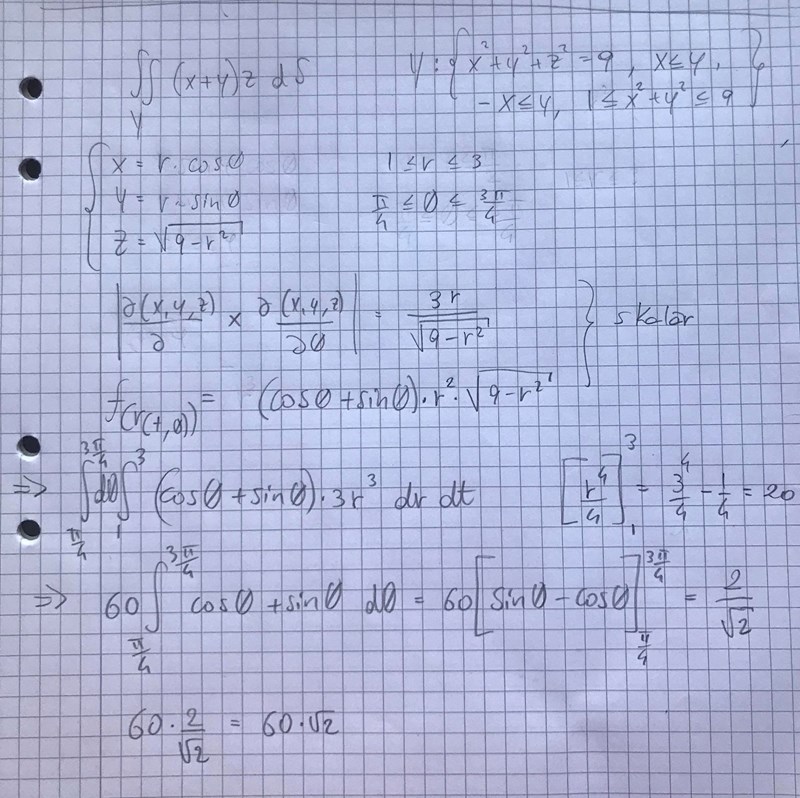 ∬ (x+y)z dS Y: { x²+y²+z² = 9 , x ≤ y ,
Y - x ≤ y, 1 ≤ x²+y² ≤ 9 }
{ x = r · cosθ 1 ≤ r ≤ 3
y = r · sinθ π/4 ≤ θ ≤ 3π/4
z = √(9-r²)
| ∂(x,y,z)/∂ × ∂(x,y,z)/∂θ | = 3r/√(9-r²) } skalär
f(r(t,θ)) = (cosθ + sinθ) · r² · √(9-r²)
=> ∫_{π/4}^{3π/4} dθ ∫_1^3 (cosθ + sinθ) · 3r³ dr dt [r⁴/4]_1^3 = 3⁴/4 - 1/4 = 20
=> 60 ∫_{π/4}^{3π/4} cosθ + sinθ dθ = 60 [sinθ - cosθ]_{π/4}^{3π/4} = 2/√2
60 · 2/√2 = 60 · √2